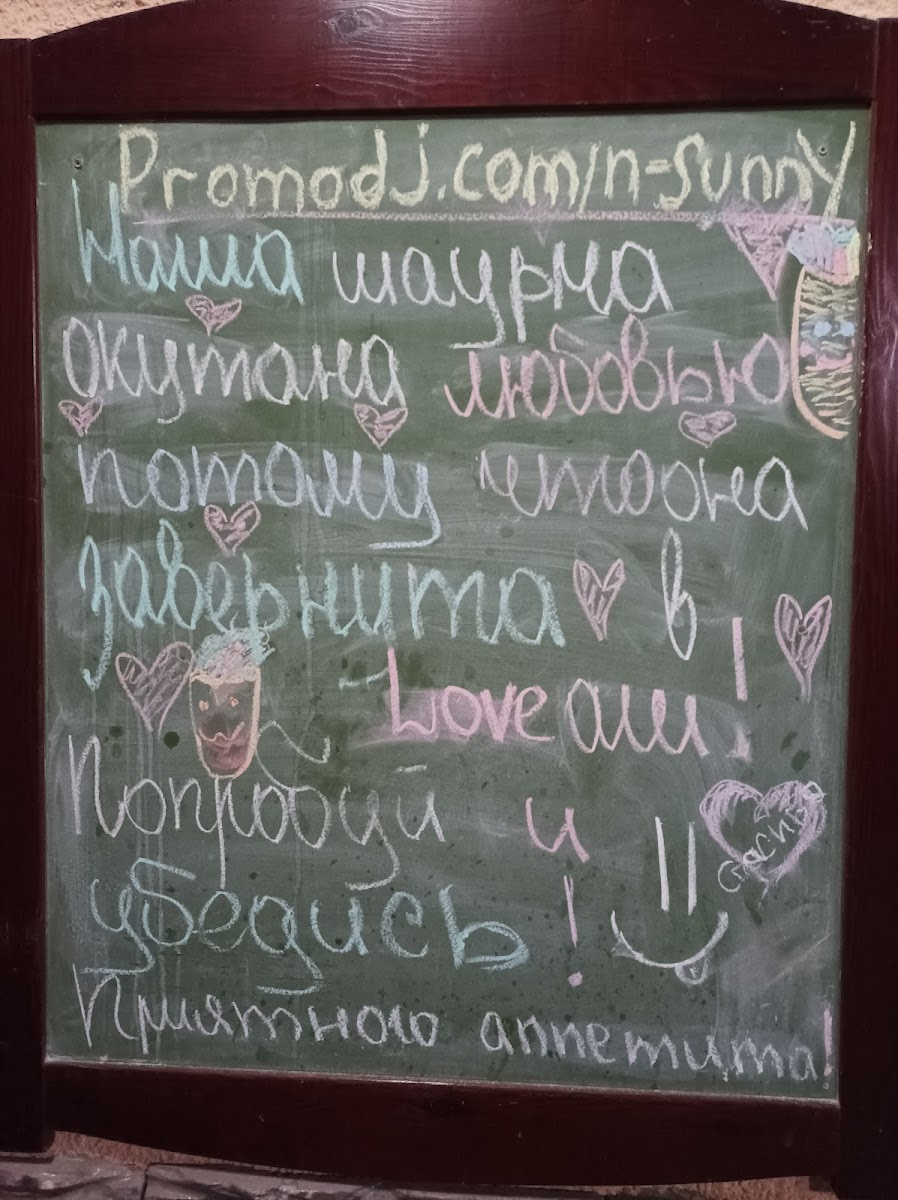 Promodj.com/n-sunny
Наша шаурма
окутана любовью
потому что она
завернута в
- Loveаш!
Попробуй и
спасибо
убедись!
Приятного аппетита!